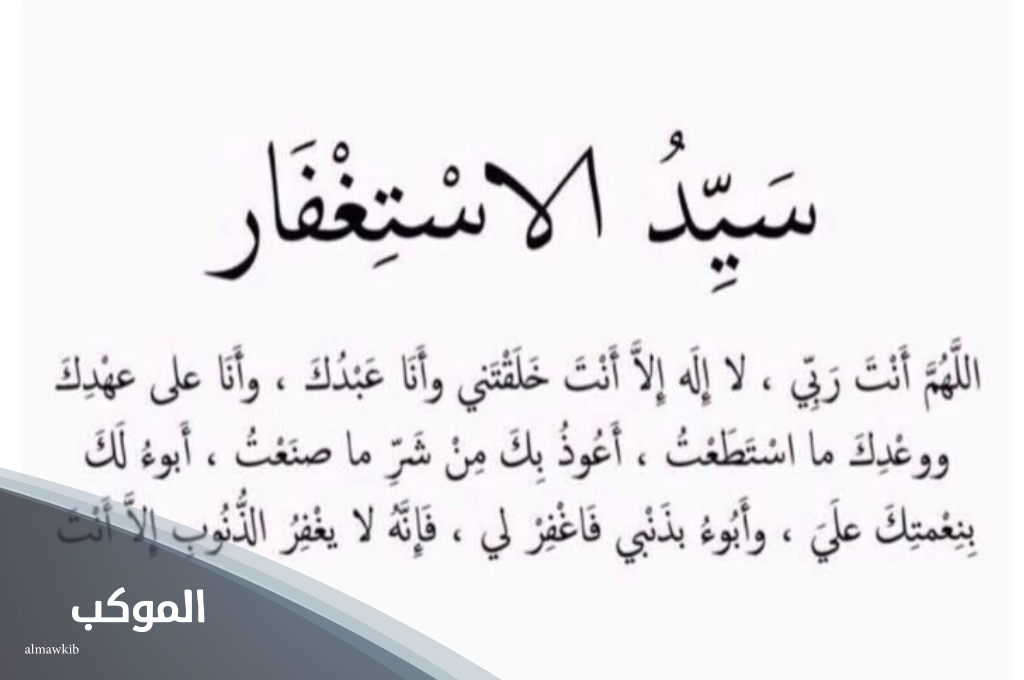 سَيِّدُ الاسْتِغْفَار
اللَّهُمَّ أَنْتَ رَبِّي ، لا إِلَه إِلاَّ أَنْتَ خَلَقْتَني وأَنَا عَبْدُكَ ، وأَنَا على عهْدِكَ
ووعْدِكَ ما اسْتَطَعْتُ ، أَعُوذُ بِكَ مِنْ شَرِّ ما صنَعْتُ ، أَبوءُ لَكَ
بِنِعْمتِكَ علَيَ ، وأَبُوءُ بذَنْبي فَاغْفِرْ لي ، فَإِنَّهُ لا يغْفِرُ الذُّنُوبِ إِلاَّ أَنْتَ
الموكب
almawkib